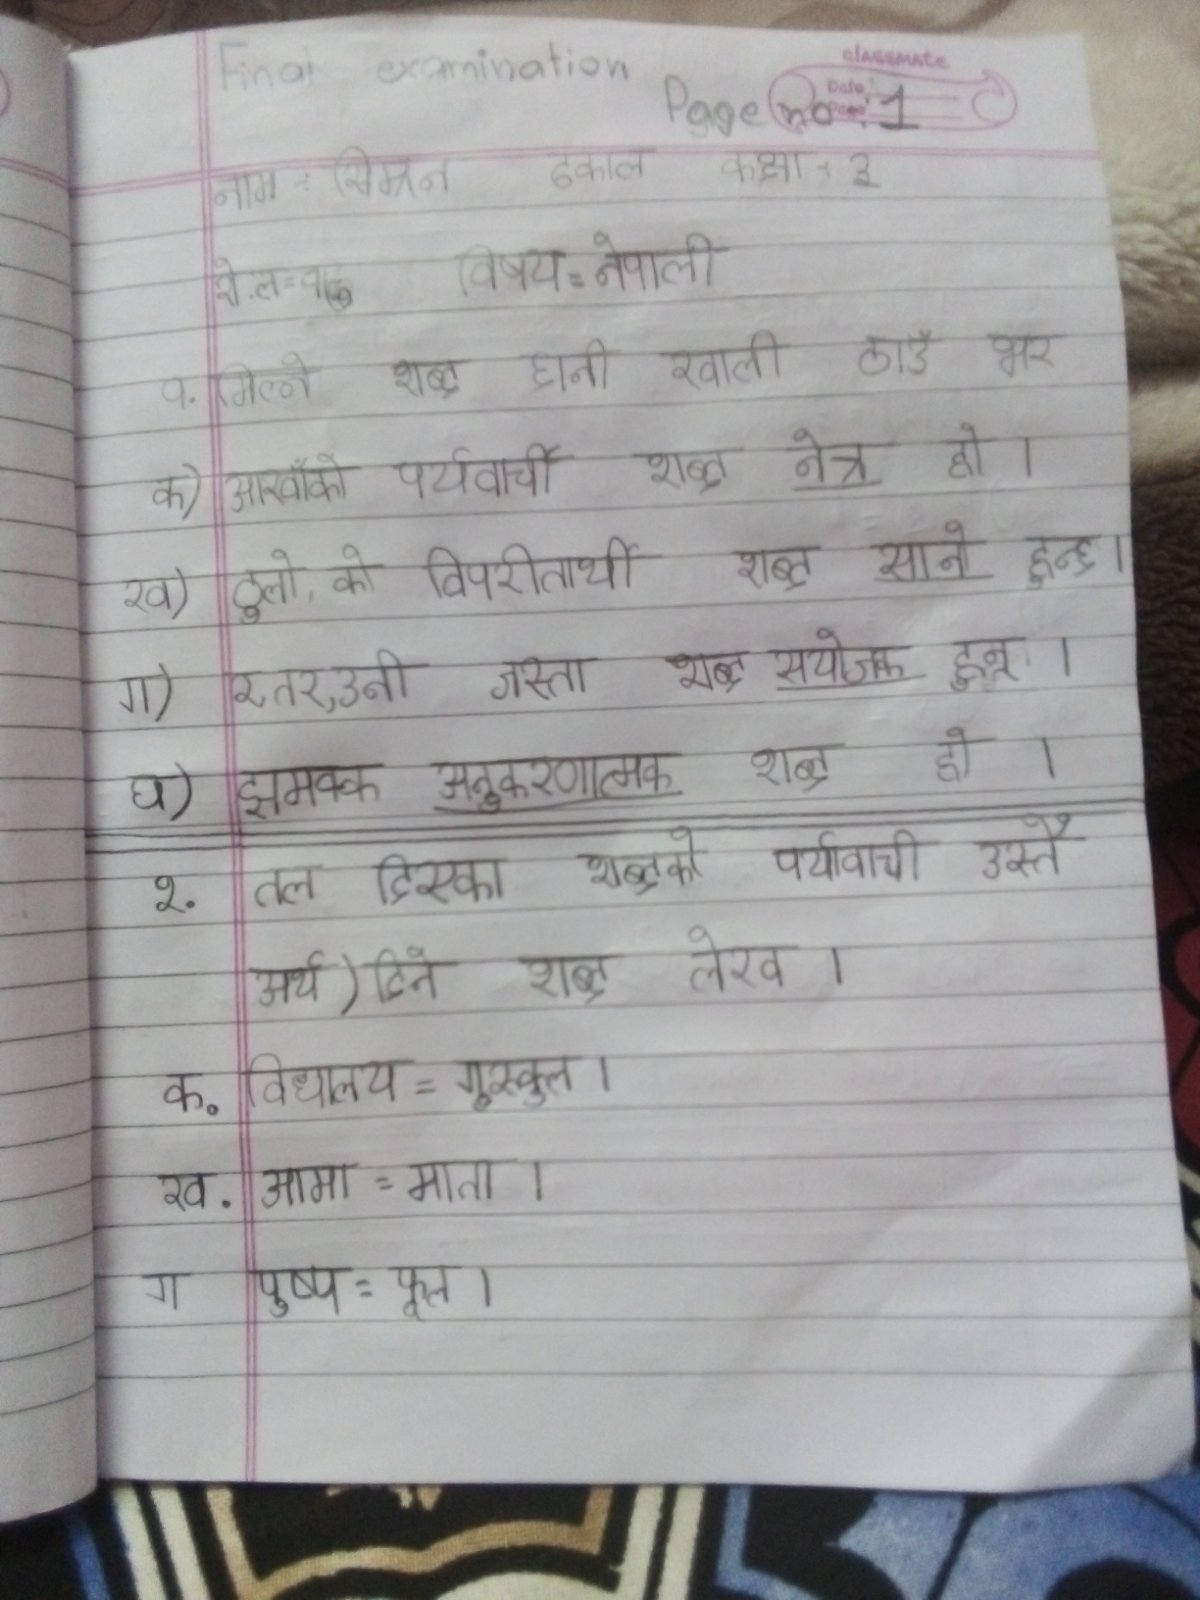 Final examination
classmate
Date
Page
Page no: 1
नाम = सिम्रन ढकाल कक्षा = ३
रो.ल=
विषय = नेपाली
१. मिल्ने शब्द छानी खाली ठाउँ भर
क) आखाँको पर्यवाची शब्द नेत्र हो ।
ख) ठुलो, को विपरीतार्थी शब्द सानो हुन्छ।
ग) र,तर,उनी जस्ता शब्द सयोजक हुन् ।
घ) झमक्क अनुकरणात्मक शब्द हो ।
२. तल दिएका शब्दको पर्यावाची उस्तै
अर्थ ) दिने शब्द लेख ।
क. विधालय = गुरुकुल ।
ख. आमा = माता ।
ग पुष्प = फूल ।